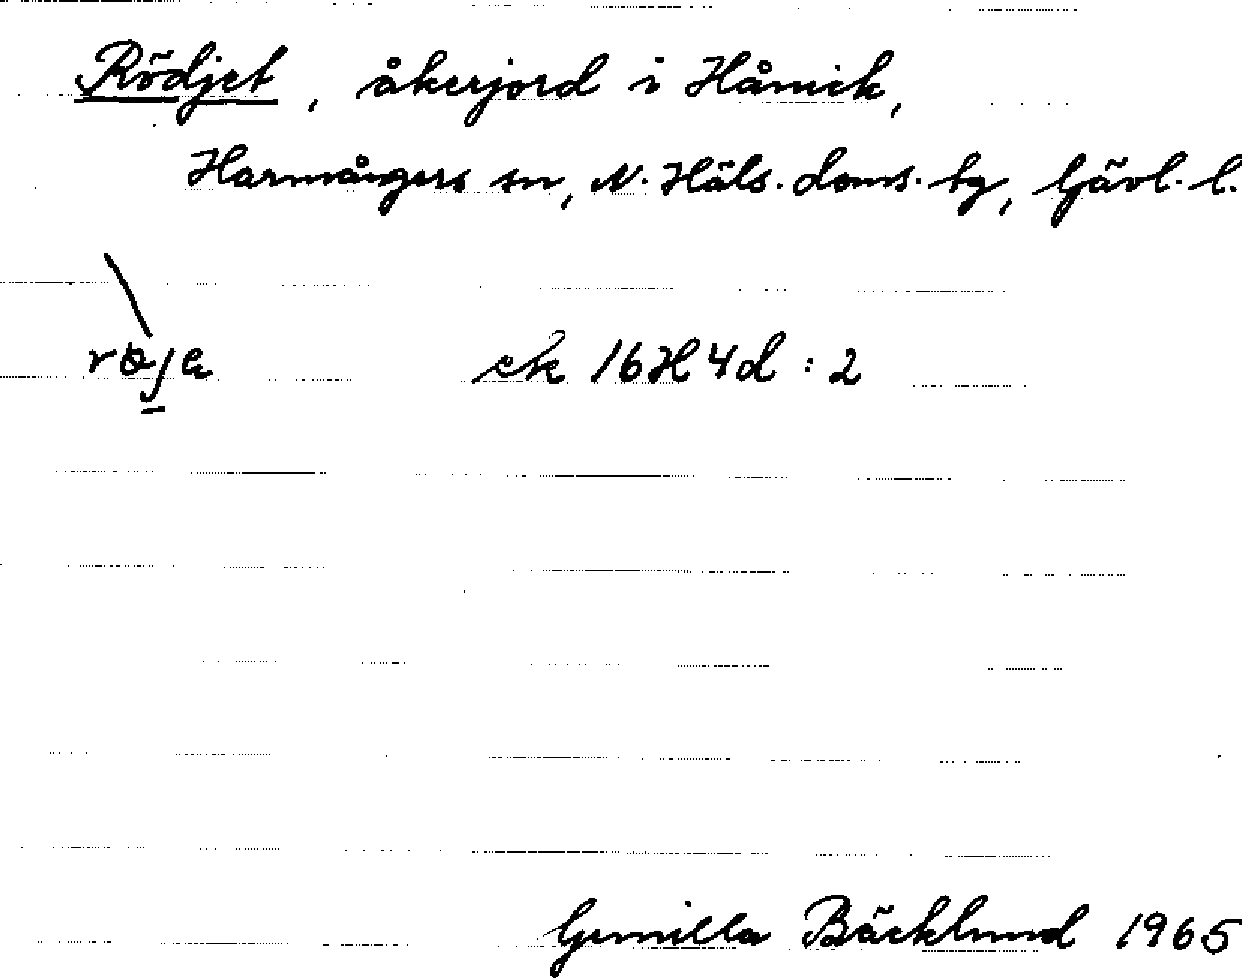 Rödjet, åkerjord i Hånick,
Harmångers sn, N. Häls. doms. hg, Gävl. l.
røja ek 16H4d:2
Gunilla Bäcklund 1965